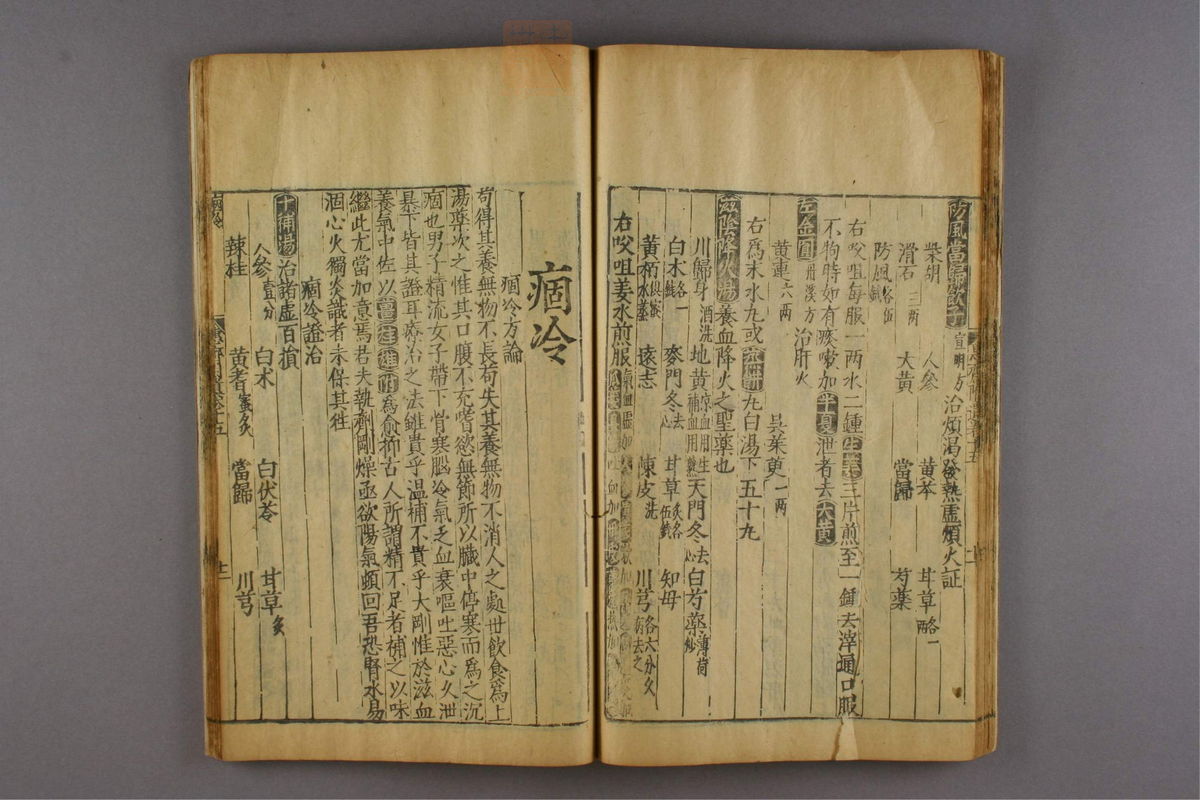 防風當歸飲子 宣明方 治煩渴發熱虛煩火証
柴胡 人參 黃芩 甘草 各一兩
滑石 三兩 大黃 當歸 芍藥
防風 各伍錢
右㕮咀每服一兩水二鍾生姜三片煎至一鍾去滓通口服
不狗時如有痰嗽加半夏泄者去大黃
左金圓 丹溪方 治肝火
黃連 六兩 吳茱萸 一兩
右為末水丸或蒸餅丸白湯下五十丸
滋陰降火湯 養血降火之聖藥也
川歸身 酒洗 地黃 凉血用生補血用熟 天門冬 去心 白芍藥 薄荷炒
白术 各一錢 麥門冬 去心 甘草 炙各伍錢 知母
黃栢 遠志 陳皮 洗 川芎 各六分久病去之
右㕮咀姜水煎服
痼冷
痼冷方論
苟得其養無物不長苟失其養無物不消人之處世飲食為上
湯藥次之惟其口腹不充嗜慾無節所以臟中停寒而為之沉
痼也男子精流女子帶下骨寒腦冷氣乏血衰嘔吐惡心久泄
暴下皆其證耳療治之法雖貴乎溫補不貴乎大剛惟於滋血
養氣中佐以薑桂雄附為愈抑古人所謂精不足者補之以味
繼此尤當加意焉君夫執劑剛燥亟欲陽氣頓回吾恐腎水易
涸心火獨炎識者未保其徃
痼冷證治
十補湯 治諸虛百損
人參 壹分 白术 白伏苓 甘草 炙
辣桂 黃耆 蜜炙 當歸 川芎
痼冷